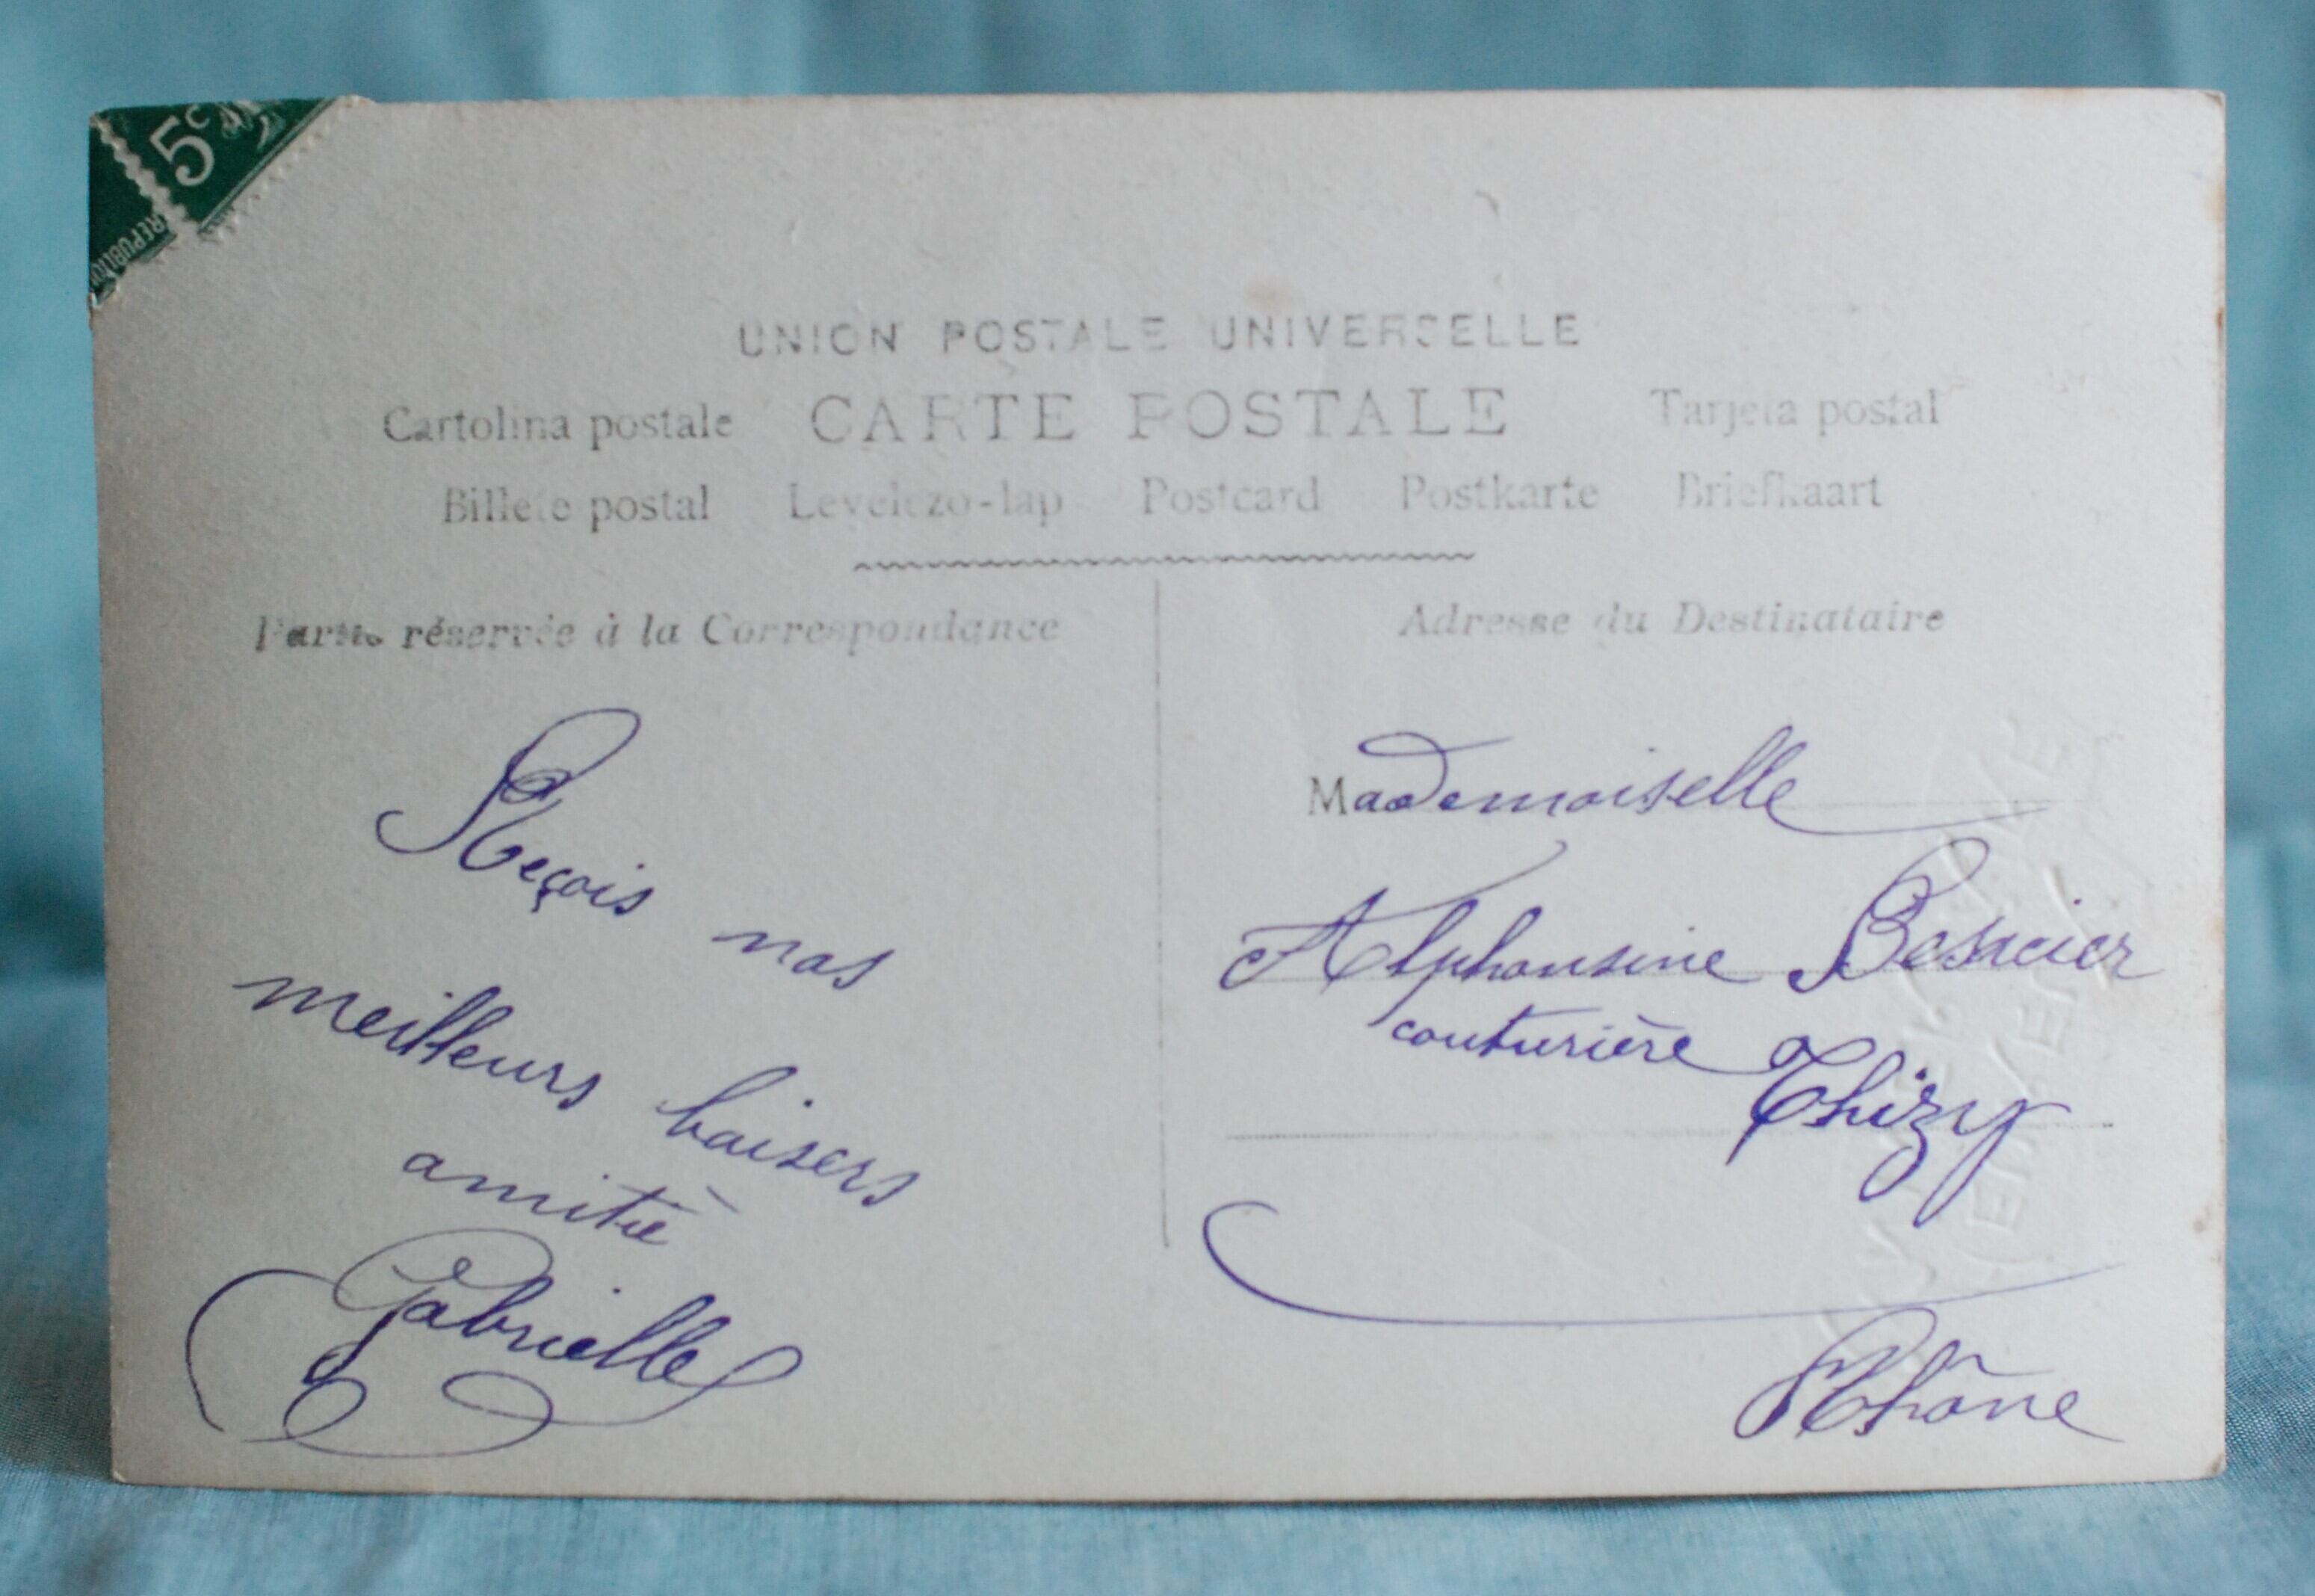 5c
REPUBLIQUE
UNION POSTALE UNIVERSELLE
Cartolina postale CARTE POSTALE Tarjeta postal
Billete postal Levelezo-lap Postcard Postkarte Briefkaart
Partie réservée à la Correspondance
Adresse du Destinataire
Reçois nos
meilleurs baisers
amitié
Gabrielle
Mademoiselle
Alphonsine
couturière Thizy
Rhône